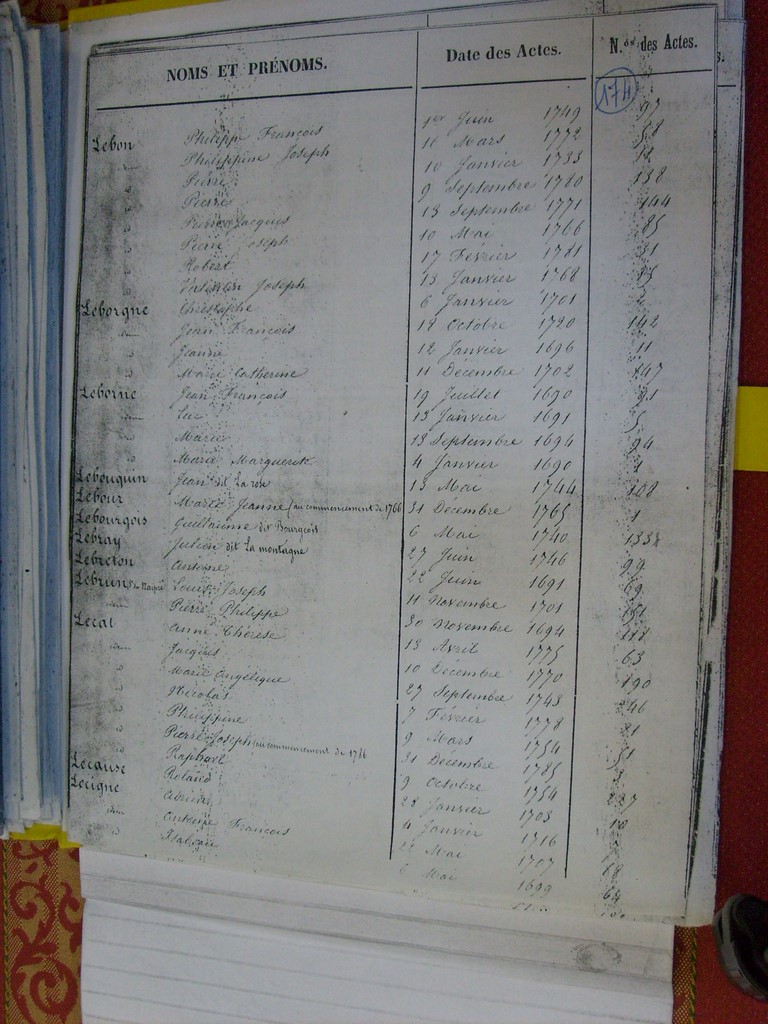 NOMS ET PRÉNOMS. Date des Actes. N.os des Actes.
174
Lebon Philippe François 1er Juin 1749 97
id Philippine Joseph 16 Mars 1772 58
id Pierre 10 Janvier 1733 12
id Pierre 9 Septembre 1780 138
id Pierre Jacques 13 Septembre 1771 144
id Pierre Joseph 10 Mai 1766 85
id Robert 17 Février 1781 31
id Valentin Joseph 13 Janvier 1768 15
Leborgne Christophe 6 Janvier 1701 2
idem Jean François 18 Octobre 1720 142
id Jeanne 12 Janvier 1696 11
id Marie Catherine 11 Décembre 1702 147
Leborne Jean François 19 Juillet 1690 81
idem Luc 13 Janvier 1691 5
id Marie 13 Septembre 1694 94
id Marie Marguerite 4 Janvier 1690 1
Lebouquin Jean dit La rose 13 Mai 1744 108
Lebour Marie Jeanne (au commencement de 1766 31 Décembre 1765 1
Lebourgois Guillaume dit Bourgeois 6 Mai 1740
Lebray Julien dit La montagne 27 Juin 1746 99
Lebreton Antoine 22 Juin 1691 69
Lebrun Louis Joseph 11 Novembre 1701 151
idem Pierre Philippe 30 Novembre 1694 118
Lecat Anne Thérèse 13 Avril 1775 63
idem Jacques 10 Décembre 1770 190
id Marie Angélique 27 Septembre 1743 146
id Nicolas 7 Février 1778 21
id Philippine 9 Mars 1754 51
id Pierre Joseph (au commencement de 1786 31 Décembre 1785 3
id Raphael 9 Octobre 1754 227
Lecause Roland 28 Janvier 1703 10
Lecigne Adrien 4 Janvier 1716
idem Antoine François Mai 1707 68
id Isabeau 2 Mai 1699 64